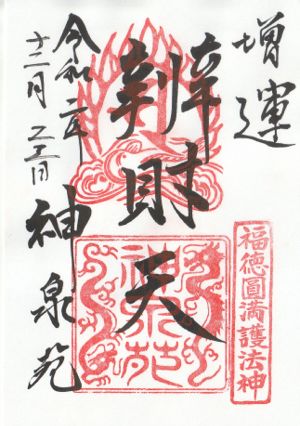 増運
福徳圓満護法神
辨財天
神泉苑
令和二年
十二月
神泉苑